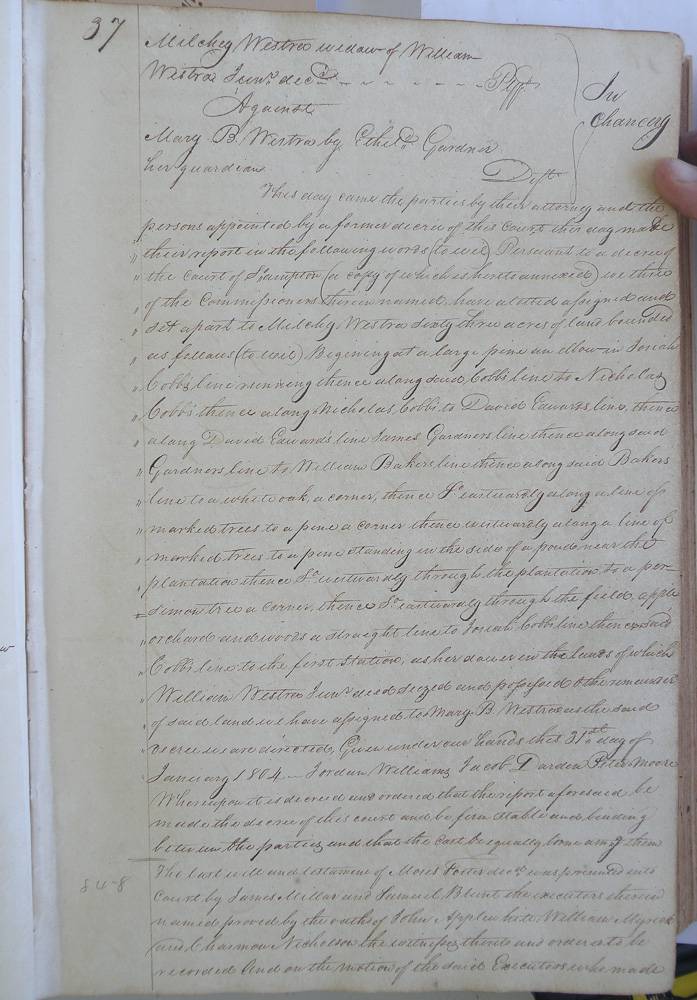 37
Milchey Westra widow of William
Westra Junr. decd. - - - - - - Plff
Against
In
Chancery
Mary B. Westra by Etheld. Gardner
her guardian
Deft
This day came the parties by their attorney and the
persons appointed by a former decree of this Court this day made
their report in the following words (to wit) Persuant to a decree of
the Court of Sampton (a copy of which is hereto annexed) we three
of the Commissioners therein named have alotted assigned and
set apart to Milchy Westra sixty three acres of land bounded
as follows (to wit) Begening at a large pine an Elbow in Josiah
Cobbs line running thence along said Cobbs line to Nicholas
Cobbs thence along Nicholas Cobbs to David Edwards line, thence
along David Edwards line James Gardners line thence along said
Gardners line to William Bakers line thence along said Bakers
line to a white oak, a corner, thence So. eastwardly along a line of
marked trees to a pine a corner thence westwardly along a line of
marked trees to a pine standing in the side of a pond near the
plantation thence So. westwardly through the plantation to a per-
simon tree a corner, thence So. eastwardly through the field, apple
orchard and woods a straight line to Josiah Cobbs line thence said
Cobbs line to the first station, as her dower in the lands of which
William Westra Junr. died seized and possessed & the remainder
of said land we have assigned to Mary B Westra as the said
decree we are directed, Given under our hands this 31st day of
January 1804 — Jordan Williams Jacob Darden Peter Moore
Whereupon it is decreed and ordered that the report aforesaid be
made the decree of this court and be firm stable and binding
between the parties and that the cost be equally borne among them
The last will and testament of Moses Foster decd. was presented into
848
Court by James Millar and Samuel Blunt the executors therein
named proved by the oaths of John Applewhite William Myrick
and Charmon Nicholson the witnesses thereto and ordered to be
recorded And on the motion of the said Executors who made